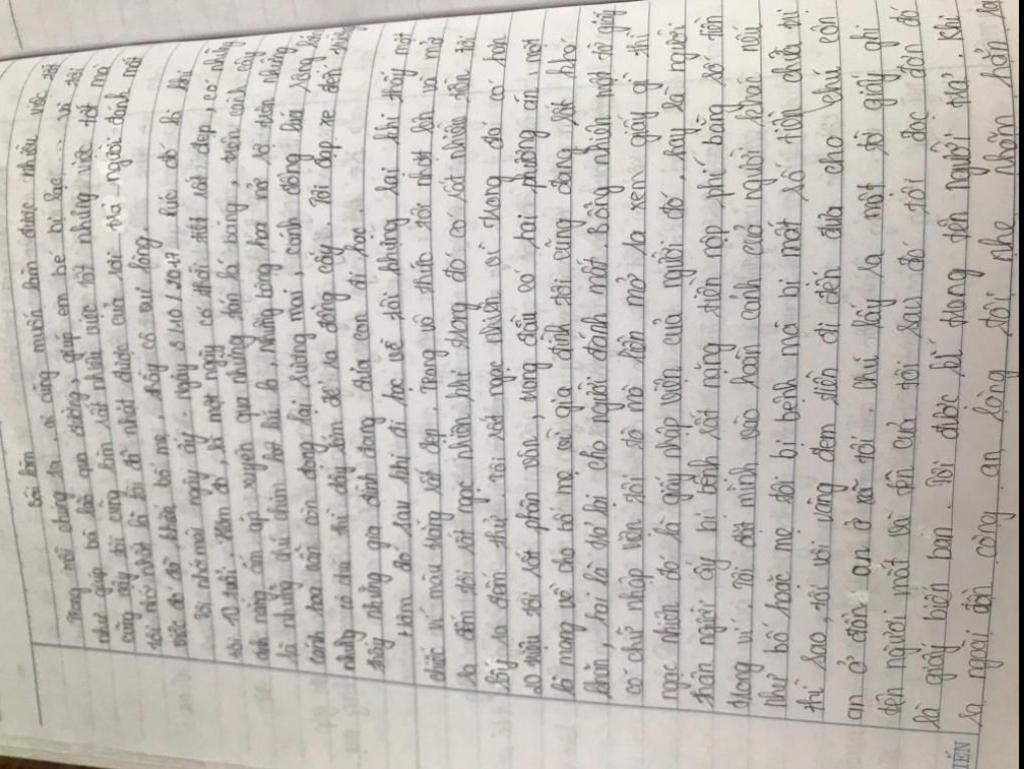 Bài làm
Trong mỗi chúng ta, ai cũng muốn làm được nhiều việc tốt
như giúp bà lão qua đường, giúp em bé bị lạc ... vì tôi
cũng vậy tôi cũng làm rất nhiều việc tốt nhưng việc tốt mà
tôi nhớ nhất là tôi đã nhặt được của rơi trả người đánh mất
việc đó đã khiến bố mẹ, thầy cô vui lòng.
Tôi nhớ mãi ngày ấy. ngày 31.10.2017 lúc đó là khi
tôi 10 tuổi. Hôm đó, là một ngày có thời tiết rất đẹp, có những
ánh nắng ấm áp xuyên qua những tán lá bàng, trên cành cây
là những chú chim hót líu lo, những bông hoa nở rộ trên những
cánh hoa vẫn còn đọng lại sương mai, cánh đồng lúa vàng
những cô chú thì dậy sớm để ra đồng cày. Tôi đạp xe đến
thấy những gia đình đang đưa con đi học.
Hôm đó sau khi đi học về tôi khựng lại khi thấy một
chiếc ví màu trông rất đẹp. Trong vô thức tôi nhặt lên và mở
ra đến tôi rất ngạc nhiên khi trong đó có rất nhiều tiền tôi
lấy ra đếm thử. Tôi rất ngạc nhiên vì trong đó có hơn
20 triệu tôi rất phân vân, trong đầu có hai phương án, một
là mang về cho bố mẹ vì gia đình tôi cũng đang rất khó
khăn, hai là trả lại cho người đánh mất. Bỗng nhiên một tờ giấy
có chữ nhập viện tôi tò mò liền mở ra xem giấy gì thì
ngạc nhiên đó là giấy nhập viện của người đó, hay là người
thân người ấy bị bệnh rất nặng tiền nộp phí bằng số tiền
trong ví. Tôi đặt mình vào hoàn cảnh của người khác nếu
như bố hoặc mẹ tôi bị bệnh mà bị mất số tiền chữa trị
thì sao, tôi vội vàng đem tiền đi đến đưa cho chú công
an ở đồn an ở xã tôi. chú lấy ra một tờ giấy ghi
tên người mất và tên của tôi sau đó tôi đọc đoạn đó
là giấy biên bản. Tôi được kí trong tên người trả. Khi
ra ngoài đồn công an lòng tôi nhẹ nhõm hẳn ra
IẾN